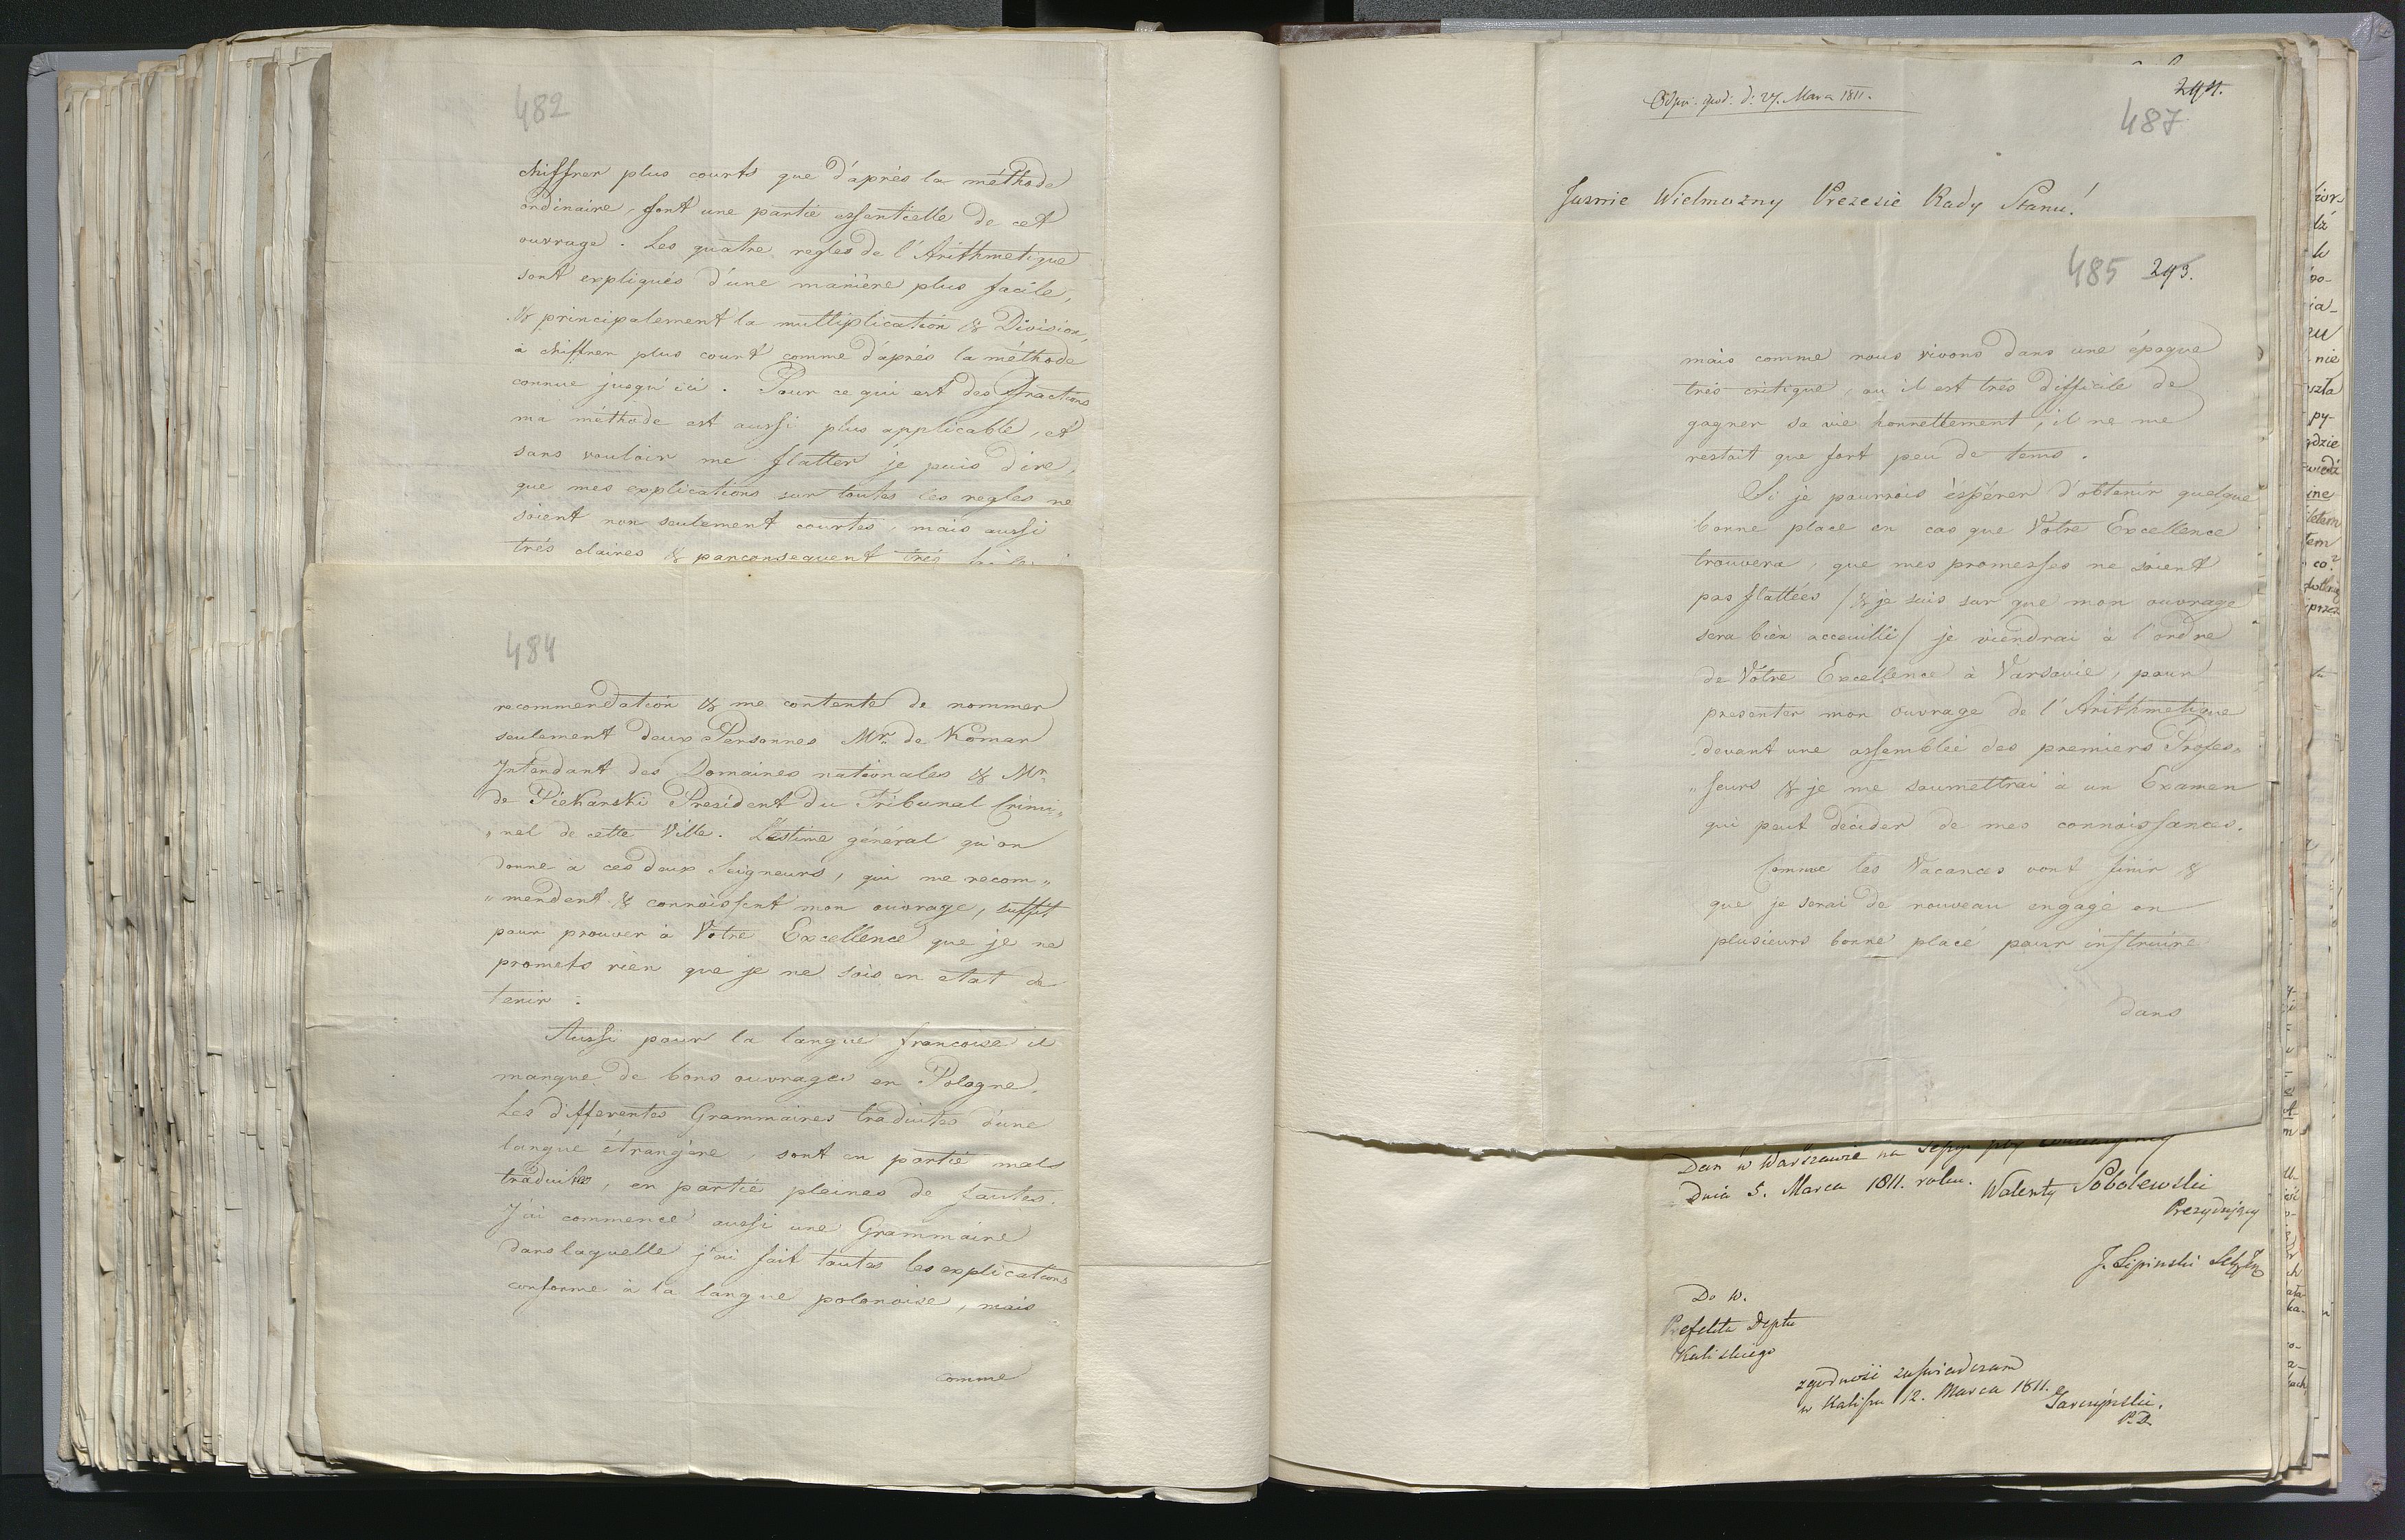 482
chiffrer plus courts que d'aprés la méthode
ordinaire, font une partie essentielle de cet
ouvrage. Les quatre regles de l'Arithmetique
sont expliqués d'une maniere plus facile,
& principalement la multiplication & Division,
à chiffrer plus court comme d'aprés la méthode
connue jusqu'ici. Pour ce qui est des fractions
ma méthode est aussi plus applicable, et
sans vouloir me flatter je puis dire,
que mes explications sur toutes les regles ne
soient non seulement courtes, mais aussi
trés claires & parconsequent trés
484
recommendation & me contente de nommer
seulement deux Personnes Mr. de Komar
Intendant des Domaines nationales & Mr.
de Piekarski President du Tribunal Crimi„
„nel de cette Ville. L'estime général qu'on
donne à ces deux Seigneurs, qui me recom„
„mendent & connoissent mon ouvrage, suffit
pour prouver à Votre Excellence que je ne
promets rien que je ne sois en etat de
tenir.
Aussi pour la langue francoise il
manque de bons ouvrages en Pologne.
Les differentes Grammaires traduites d'une
langue étrangère, sont en partie mals
traduites, en partie pleines de fautes.
J'ai commencé aussi une Grammaire
dans laquelle j'ai fait toutes les explications
conforme à la langue polonoise, mais
comme
Odpw: pod: d: 27. Marca 1811.
294.
487
Jasnie Wielmożny Prezesie Rady Stanu!
485 293.
mais comme nous vivons dans une époque
trés critique, ou il est trés difficile de
gagner sa vie honnettement, il ne me
restoit que fort peu de tems.
Si je pourrois éspérer d'obtenir quelque
bonne place en cas que Votre Excellence
trouvera, que mes promesses ne soient
pas flattées /& je suis sur que mon ouvrage
sera bien acceuilli/ je viendrai à l'ordre
de Votre Excellence à Varsovie, pour
presenter mon ouvrage de l'Arithmetique
devant une assemblée des premiers Profes„
„seurs & je me soumettrai à un Examen
qui peut décider de mes connoissances.
Comme les Vacances vont finir &
que je serai de nouveau engagé en
plusieurs bonne placé pour instruire
dans
Dan w Warszawie na
Dnia 5. Marca 1811. roku. Walenty Sobolewski
Prezydujący
J. Lipinski
Do W.
Prefekta Deptu
Kaliskiego
zgodność zaświadczam
w Kaliszu 12. Marca 1811.
Garczyński.
P.D.